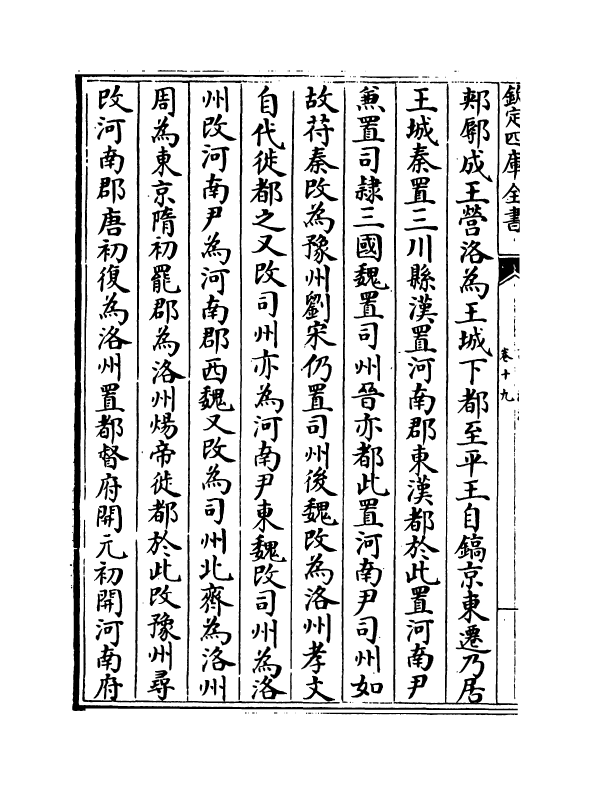 欽定四庫全書
卷十九
郟鄏成王營洛為王城下都至平王自鎬京東遷乃居
王城秦置三川縣漢置河南郡東漢都於此置河南尹
兼置司隸三國魏置司州晉亦都此置河南尹司州如
故苻秦改為豫州劉宋仍置司州後魏改為洛州孝文
自代徙都之又改司州亦為河南尹東魏改司州為洛
州改河南尹為河南郡西魏又改為司州北齊為洛州
周為東京隋初罷郡為洛州煬帝徙都於此改豫州尋
改河南郡唐初復為洛州置都督府開元初開河南府